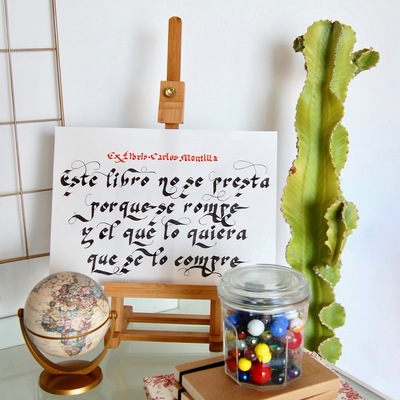 Ex Libris-Carlos Montilla
Este libro no se presta
porque se rompe
y el que lo quiera
que se lo compre